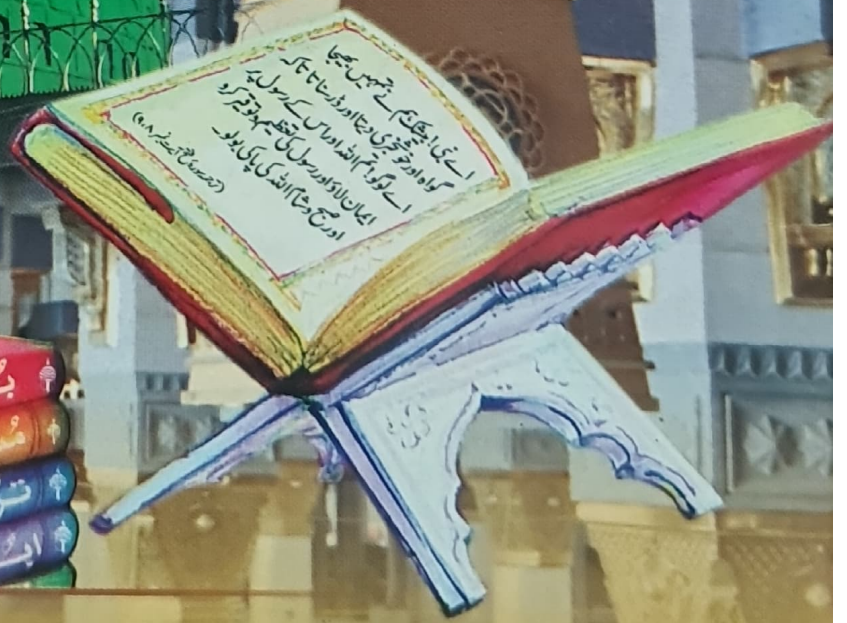 اے نبی! بیشک ہم نے تمہیں بھیجا
گواہ اور خوشخبری دیتا اور ڈر سناتا تاکہ
اے لوگو! تم اللہ اور اس کے رسول پر
ایمان لاؤ اور رسول کی تعظیم و توقیر کرو
اور صبح و شام اللہ کی پاکی بولو۔